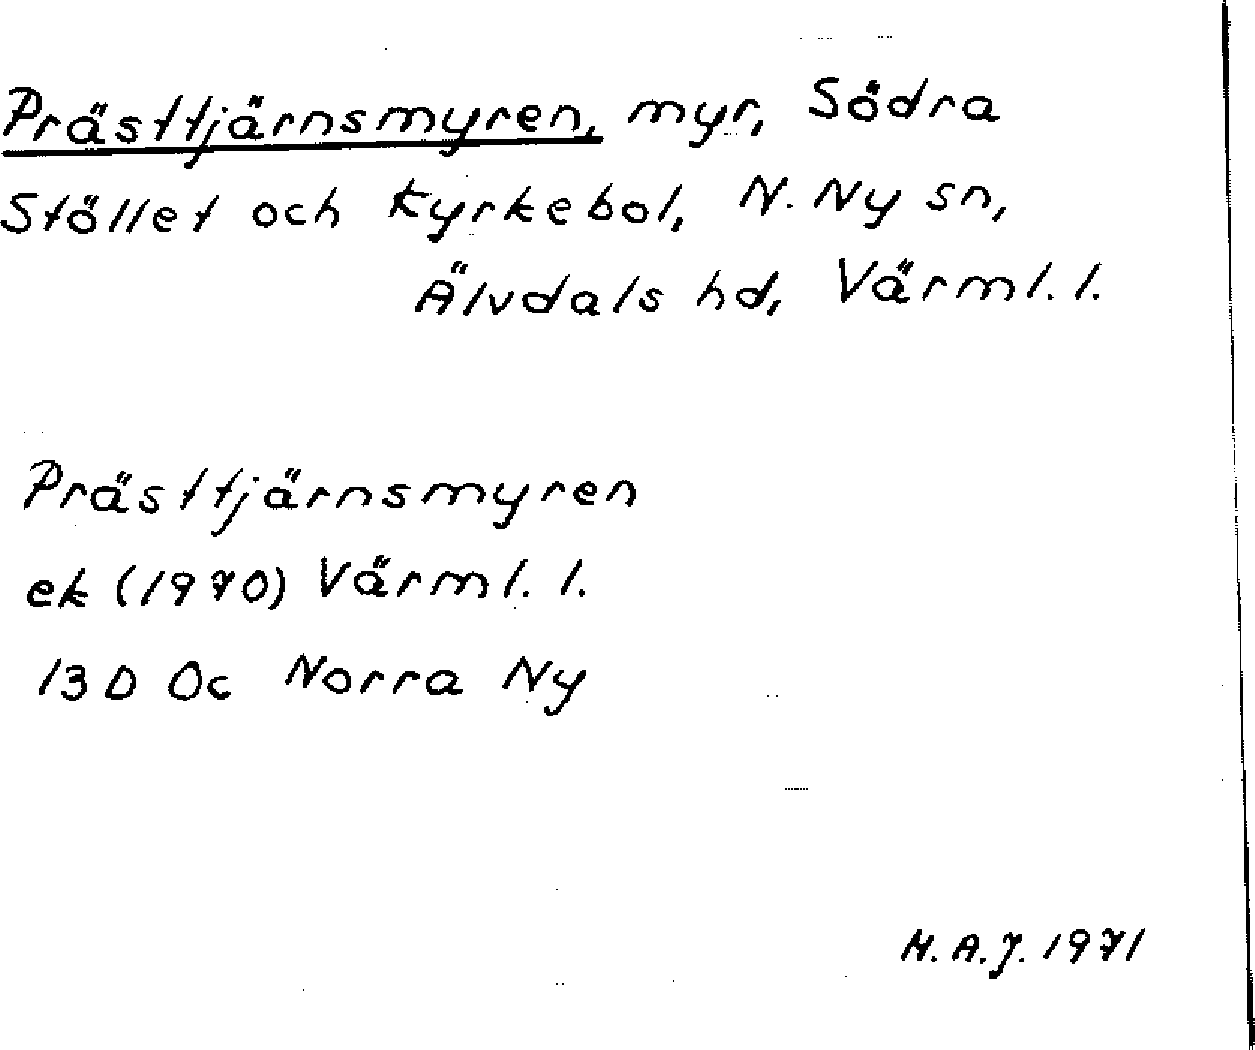 Prästtjärnsmyren, myr, Södra
Stöllet och Kyrkebol, N. Ny sn,
Älvdals hd, Värml. l.
Prästtjärnsmyren
ek (1970) Värml. l.
13 D 0c Norra Ny
H. A. J. 1971